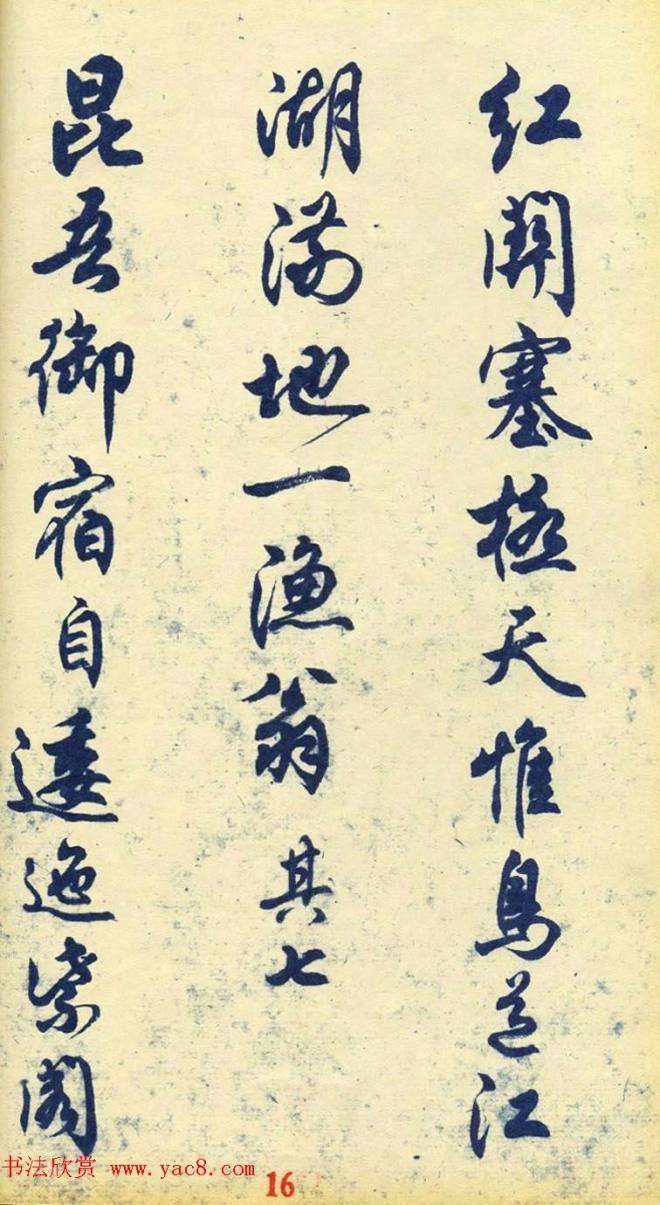 红關塞極天惟鳥道江
湖满地一漁翁 其七
昆吾御宿自逶迤紫閣
书法欣赏 www.yac8.com
16